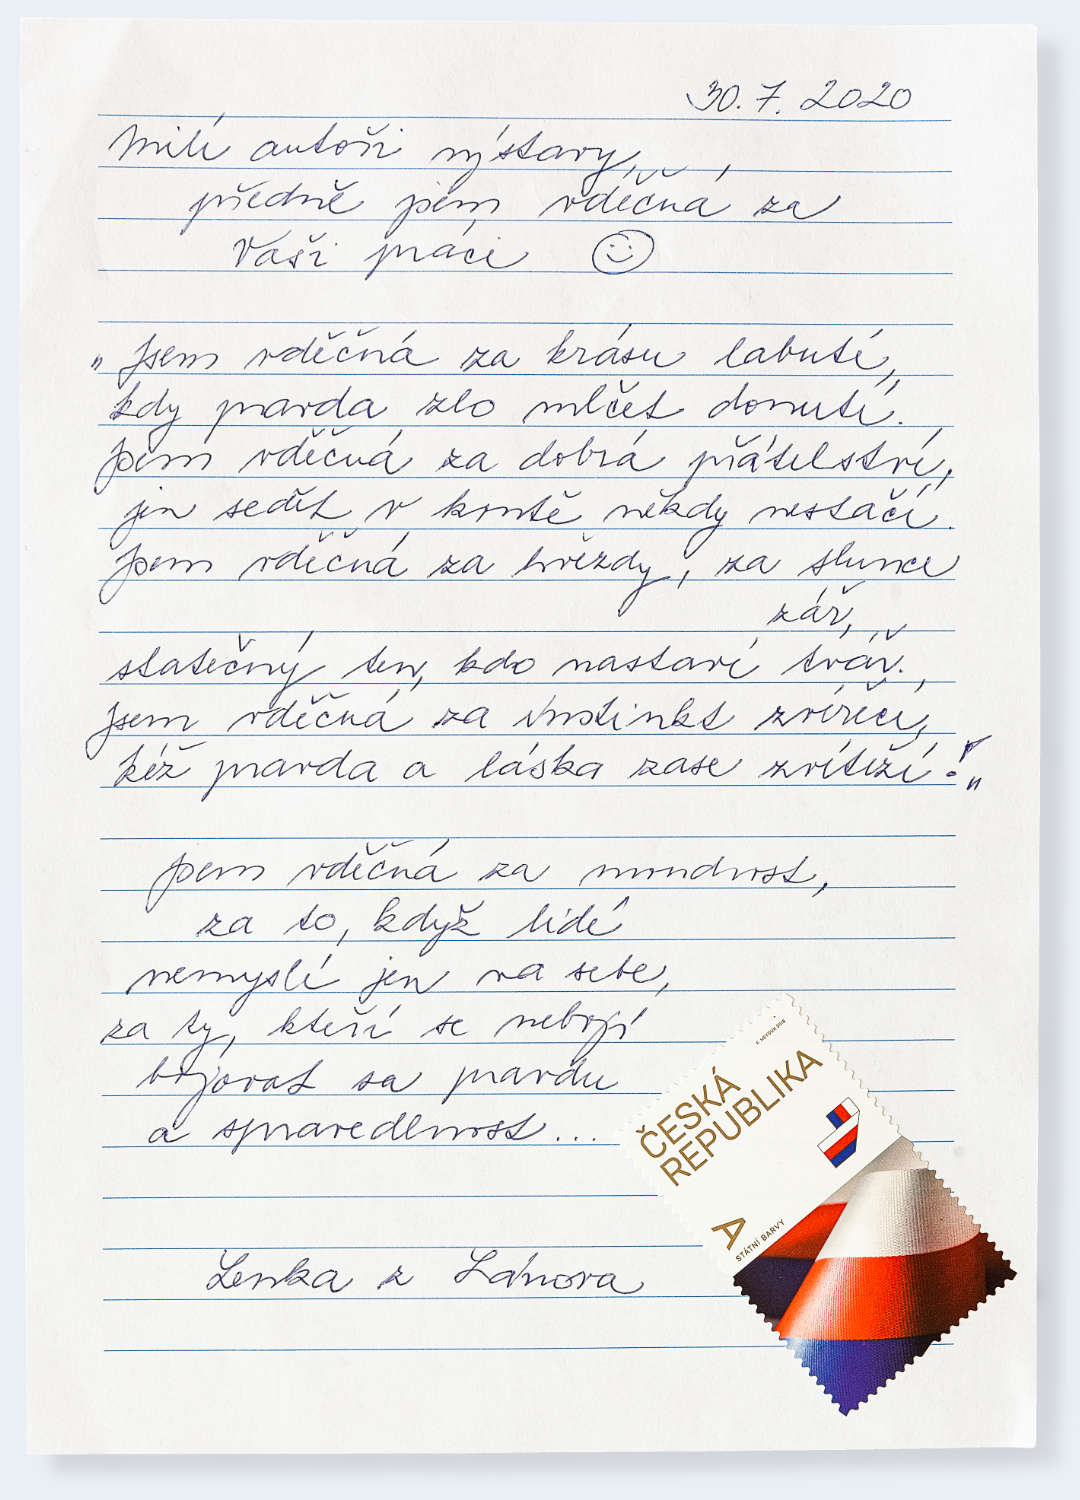 30. 7. 2020
Milí autoři výstavy,
předně jsem vděčná za
Vaši práci
„ Jsem vděčná za krásu labutí,
kdy pravda zlo mlčet donutí.
Jsem vděčná za dobrá přátelství,
jen sedět v koutě někdy nestačí.
Jsem vděčná za hvězdy, za slunce
zář,
statečný ten, kdo nastaví tvář.
Jsem vděčná za instinkt zvířecí,
kéž pravda a láska zase zvítězí !"
Jsem vděčná za moudrost,
za to, když lidé
nemyslí jen na sebe,
za ty, kteří se nebojí
bojovat za pravdu
a spravedlnost...
Lenka z Lánova
ČESKÁ
REPUBLIKA
A
STÁTNÍ BARVY